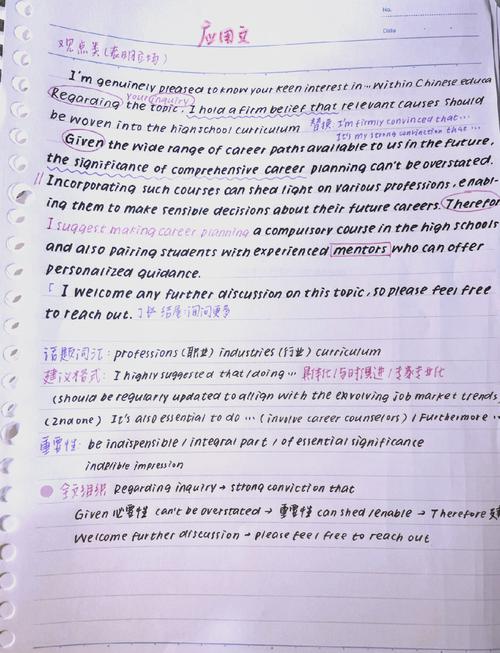 No.
Date
应用文
观点类(表明立场)
I'm genuinely pleased to know your keen interest in ... Within Chinese educa
your inquiry
Regarding the topic, I hold a firm belief that relevant causes should
be woven into the high school curriculum 替换: I'm firmly convinced that...
It's my strong conviction that ...
Given the wide range of career paths available to us in the future,
the significance of comprehensive career planning can't be overstated.
Incorporating such courses can shed light on various professions, enabl-
ing them to make sensible decisions about their future careers. Therefor
I suggest making career planning a compulsory course in the high schools
and also pairing students with experienced mentors who can offer
personalized guidance.
I welcome any further discussion on this topic, so please feel free
to reach out.
话题词汇: professions (职业) industries (行业) curriculum
建议模式: I highly suggested that / doing ... 具体化/与时俱进/专家专业化
(should be regularly updated to align with the exvolving job market trends
(2nd one) It's also essential to do ... (involve career counselors) / Furthermore ..
重要性: be indispensible / integral part / of essential significance
indelible impression
全文组织 Regarding inquiry → strong conviction that
Given 必要性 can't be overstated → 重要性 can shed / enable → Therefore
Welcome further discussion → please feel free to reach out